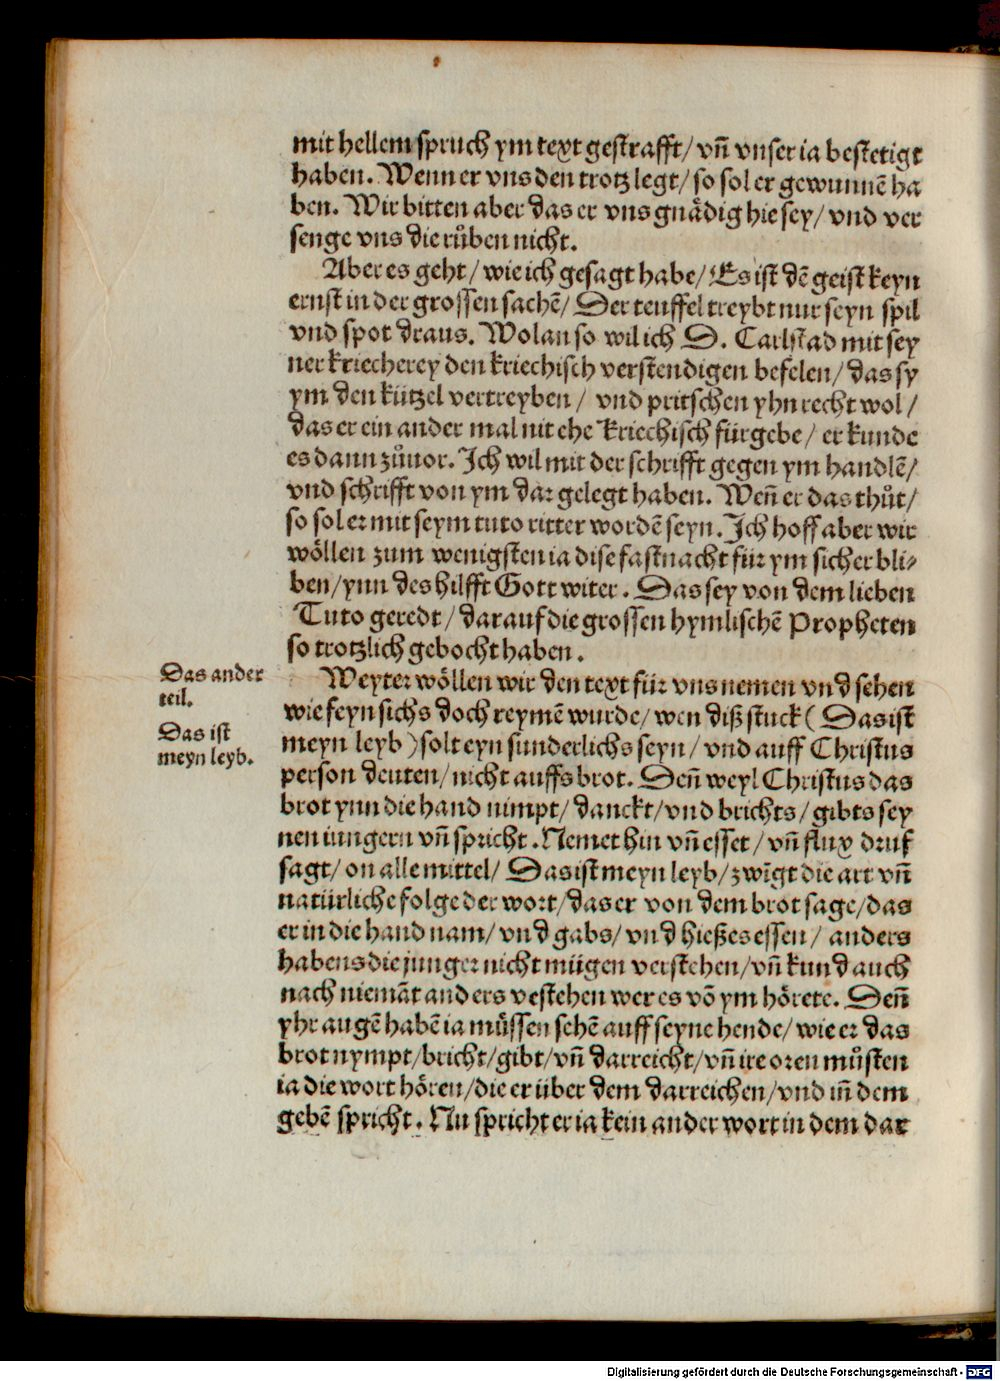 mit hellem spruch ym text gestrafft/ vn̄ vnser ia bestetigt
haben. Wenn er vns den trotz legt/ so sol er gewunnē ha
ben. Wir bitten aber das er vns gnädig hie sey/ vnd ver
senge vns die růben nicht.
Aber es geht/ wie ich gesagt habe/ Es ist dē geist keyn
ernst in der grossen sachē/ Der teuffel treybt nur seyn spil
vnd spot draus. Wolan so wil ich D. Carlstad mit sey
ner kriecherey den kriechisch verstendigen befelen/ das sy
ym den kützel vertreyben/ vnd pritschen yhn recht wol/
das er ein ander mal nit ehe kriechisch fürgebe/ er kunde
es dann zůuor. Ich wil mit der schrifft gegen ym handlē/
vnd schrifft von ym dar gelegt haben. Wen̄ er das thůt/
so sol er mit seym tuto ritter wordē seyn. Ich hoff aber wir
wöllen zum wenigsten ia dise fastnacht für ym sicher bli-
ben/ ynn des hilfft Gott witer. Das sey von dem lieben
Tuto geredt/ darauf die grossen hymlischē Propheten
so trotzlich gebocht haben.
Das ander
teil.
Das ist
meyn leyb.
Weyter wöllen wir den text für vns nemen vnd sehen
wie feyn sichs doch reymē wurde/ wen diß stuck (Das ist
meyn leyb) solt eyn sunderlichs seyn/ vnd auff Christus
person deuten/ nicht auffs brot. Den̄ weyl Christus das
brot ynn die hand nimpt/ danckt/ vnd brichts/ gibts sey
nen iungern vn̄ spricht. Nemet hin vn̄ esset/ vn̄ flux druf
sagt/ on alle mittel/ Das ist meyn leyb/ zwīgt die art vn̄
natürliche folge der wort/ das er von dem brot sage/ das
er in die hand nam/ vnd gabs/ vnd hieß es essen/ anders
habens die junger nicht mügen verstehen/ vn̄ kund auch
nach niemāt anders vestehen wer es vō ym hörete. Den̄
yhr augē habē ia müssen sehē auff seyne hende/ wie er das
brot nympt/ bricht/ gibt/ vn̄ darreicht/ vn̄ ire oren můsten
ia die wort hören/ die er über dem darreichen/ vnd in̄ dem
gebē spricht. Nu spricht er ia kein ander wort in dem dar
Digitalisierung gefördert durch die Deutsche Forschungsgemeinschaft - DFG